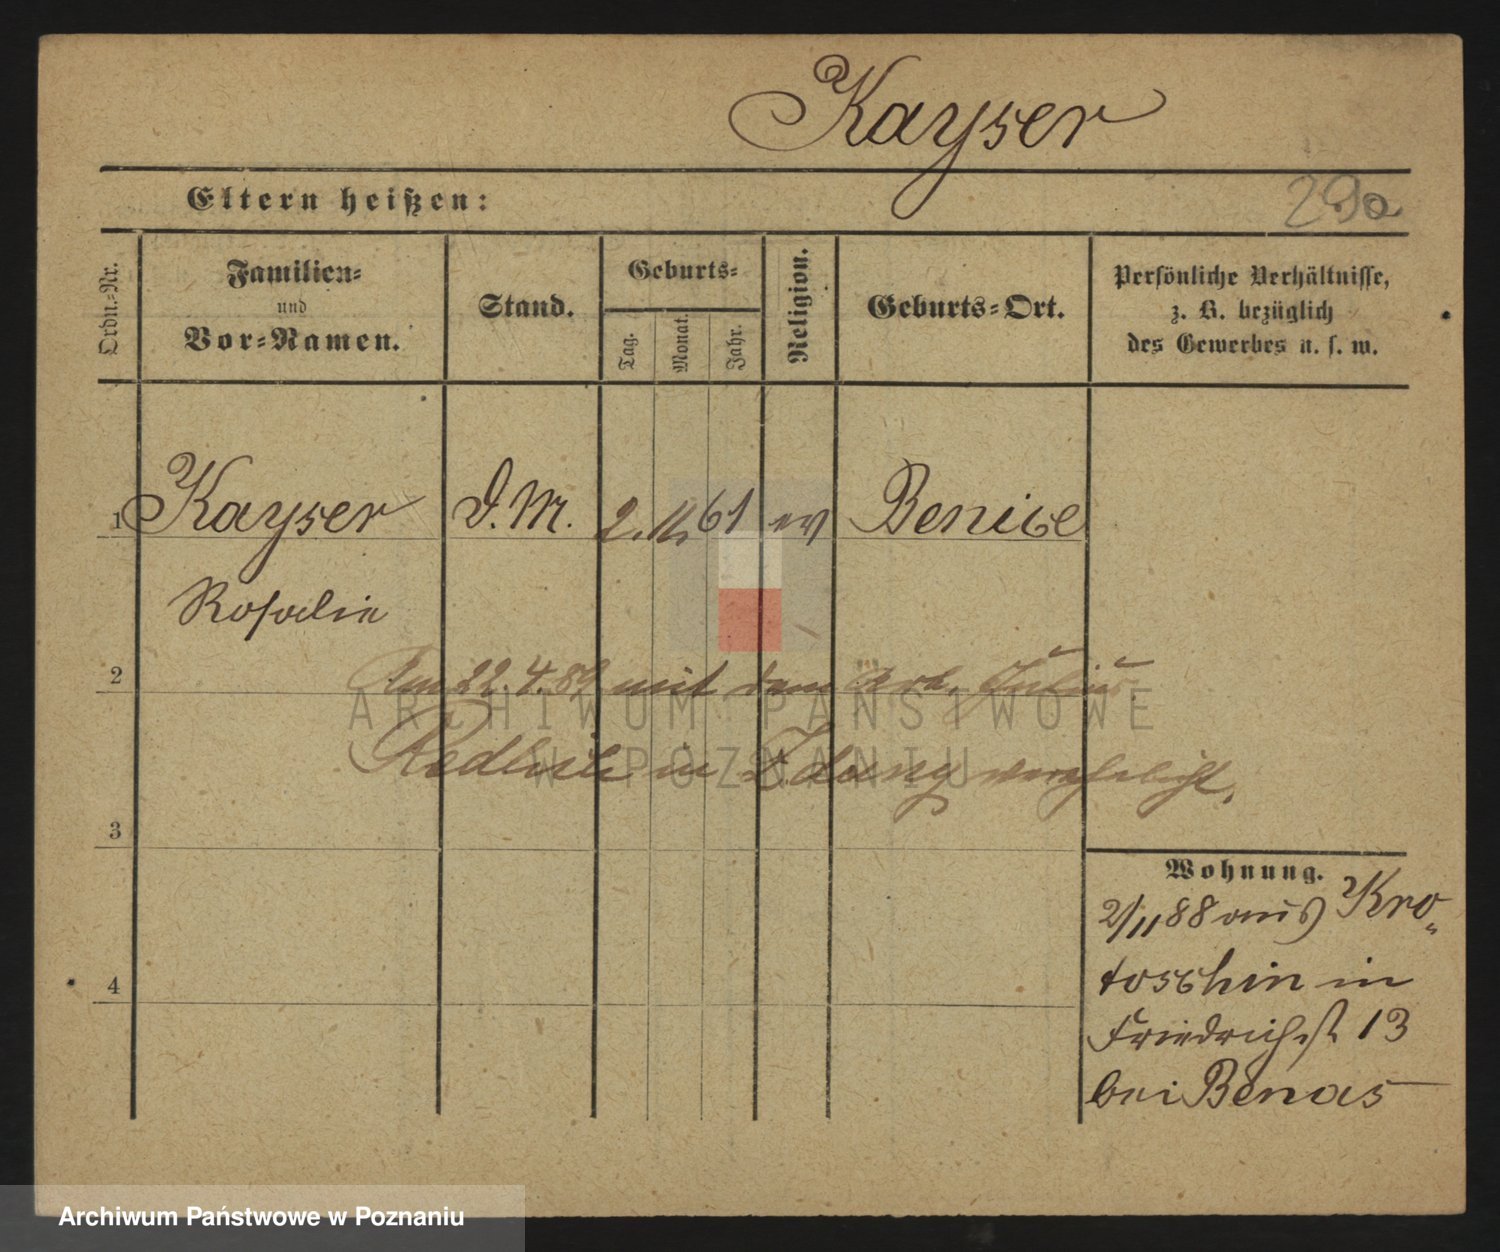 Kayser
Eltern heißen:
29a
Ordn.-Nr.
Familien-
und
Vor-Namen.
Stand.
Geburts-
Tag.
Monat.
Jahr.
Religion.
Geburts-Ort.
Persönliche Verhältnisse,
z. B. bezüglich
des Gewerbes u. s. w.
1 Kayser D.M. 2. 11. 61 ev Benice
Rosalie
2
Am 22.4.89 mit dem Arb. Julius
in verehelicht.
ARCHIWUM PAŃSTWOWE
W POZNANIU
3
Wohnung.
2/11 88 aus Kro-
toschin in
4
Friedrichst 13
bei Benas
Archiwum Państwowe w Poznaniu